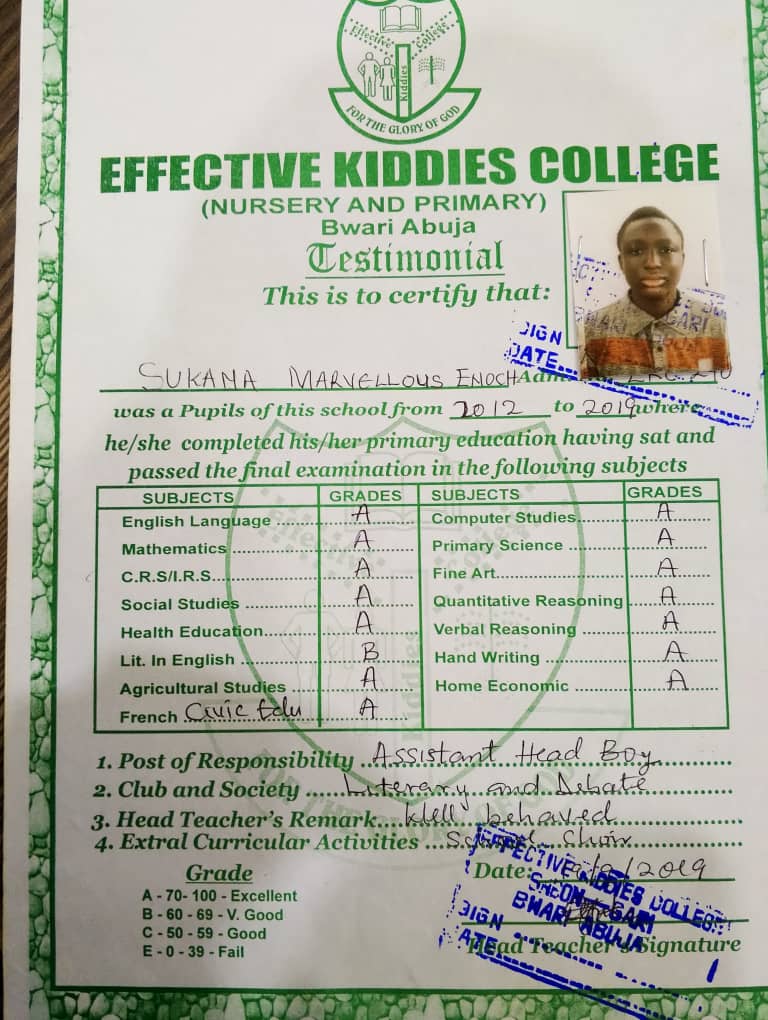 Effective College
Kiddies
FOR THE GLORY OF GOD
EFFECTIVE KIDDIES COLLEGE
(NURSERY AND PRIMARY)
Bwari Abuja
Testimonial
This is to certify that:
SIGN
DATE
SUKANA MARVELLOUS ENOCH
was a Pupils of this school from 2012 to 2019 where
he/she completed his/her primary education having sat and
passed the final examination in the following subjects
SUBJECTS GRADES SUBJECTS GRADES
English Language A Computer Studies A
Mathematics A Primary Science A
C.R.S/I.R.S A Fine Art A
Social Studies A Quantitative Reasoning A
Health Education A Verbal Reasoning A
Lit. In English B Hand Writing A
Agricultural Studies A Home Economic A
French Civic Edu A
1. Post of Responsibility Assistant Head Boy
2. Club and Society Literary and Debate
3. Head Teacher's Remark Well behaved
4. Extral Curricular Activities School Choir
Grade
A - 70- 100 - Excellent
B - 60 - 69 - V. Good
C - 50 - 59 - Good
E - 0 - 39 - Fail
Date: /2019
EFFECTIVE KIDDIES COLLEGE
BWARI ABUJA
SIGN
DATE
Head Teacher's Signature